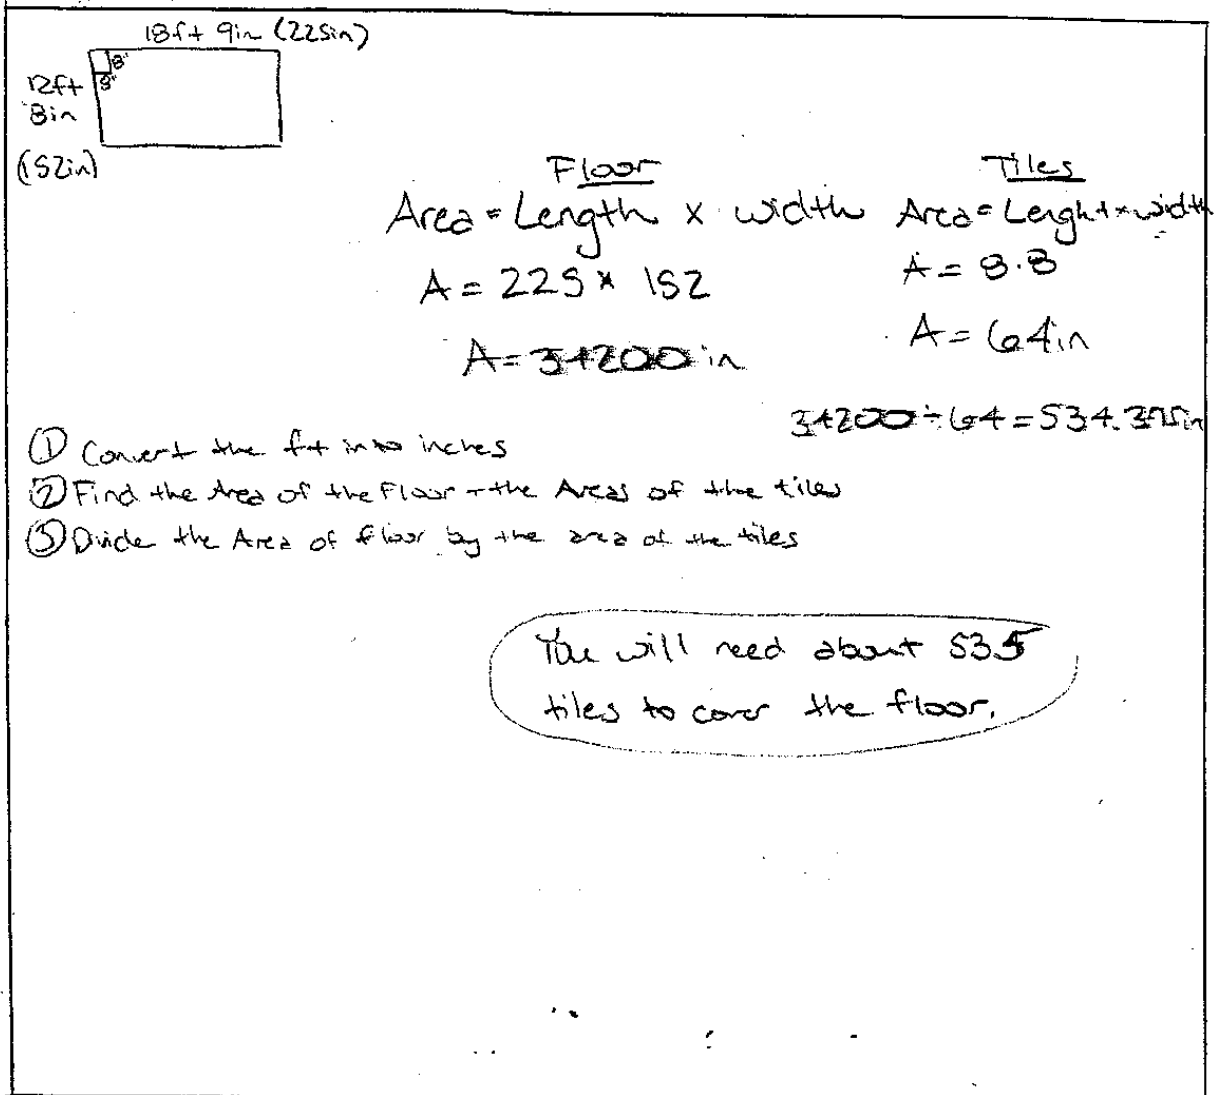 18ft 9in (225in)
8"
8"
12ft
8in
(152in)
Floor
Area = Length x width
A = 225 x 152
A = 34200 in
Tiles
Area = Lenght x width
A = 8·8
A = 64in
34200 ÷ 64 = 534.375in
① Convert the ft into inches
② Find the Area of the Floor + the Areas of the tiles
③ Divide the Area of floor by the area of the tiles
You will need about 535
tiles to cover the floor.